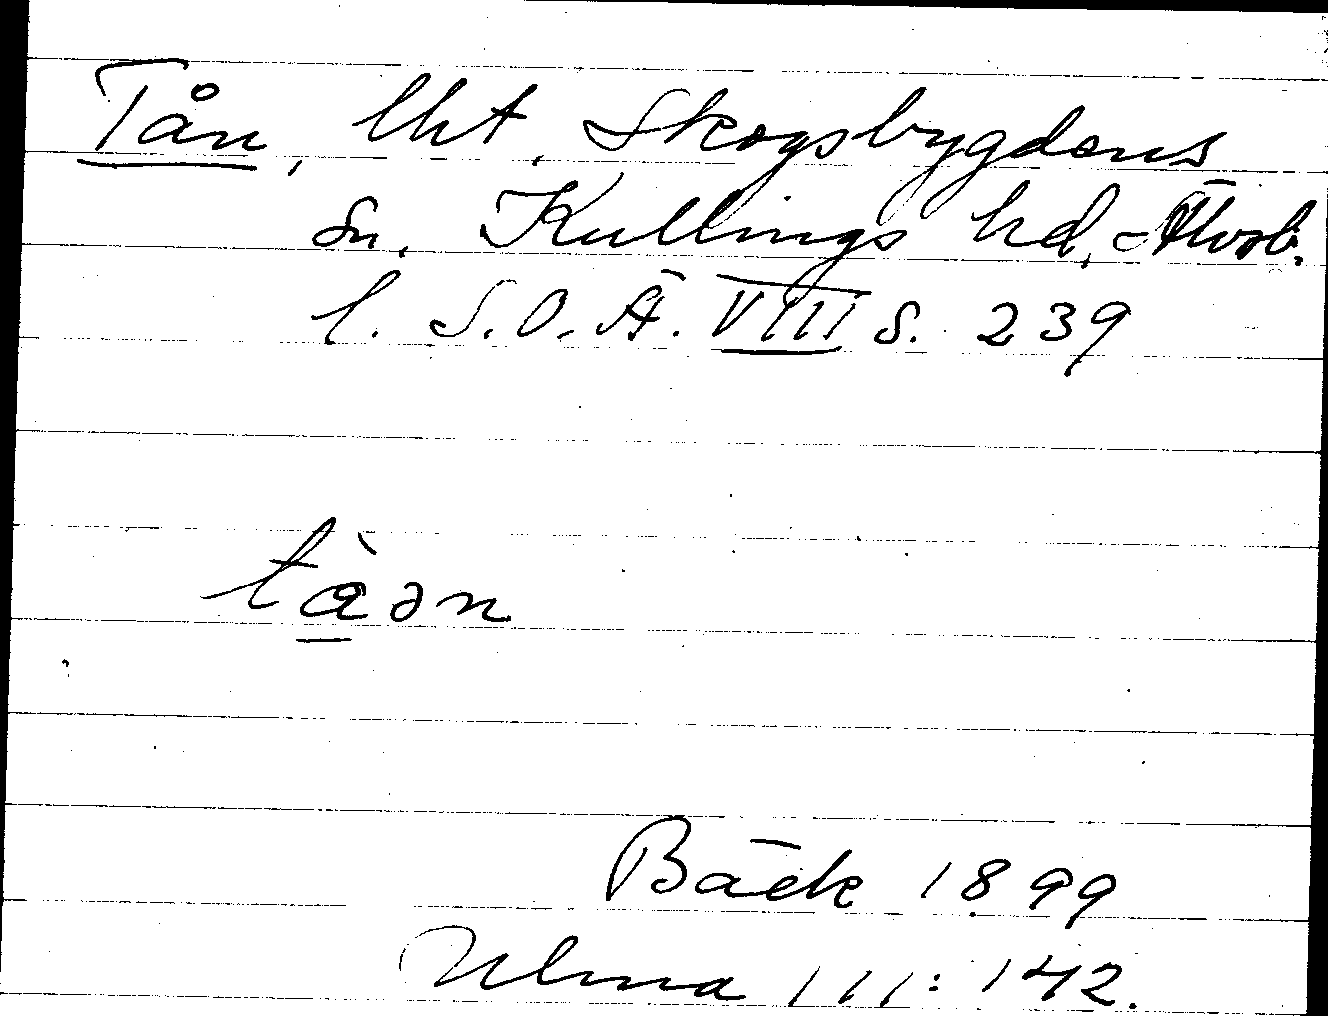 Tån, lht, Skogsbygdens
sn, Kullings hd, Älvsb.
l. S.O.Ä. VIII s. 239
tåən
Bäck 1899
Ulma 111:142.